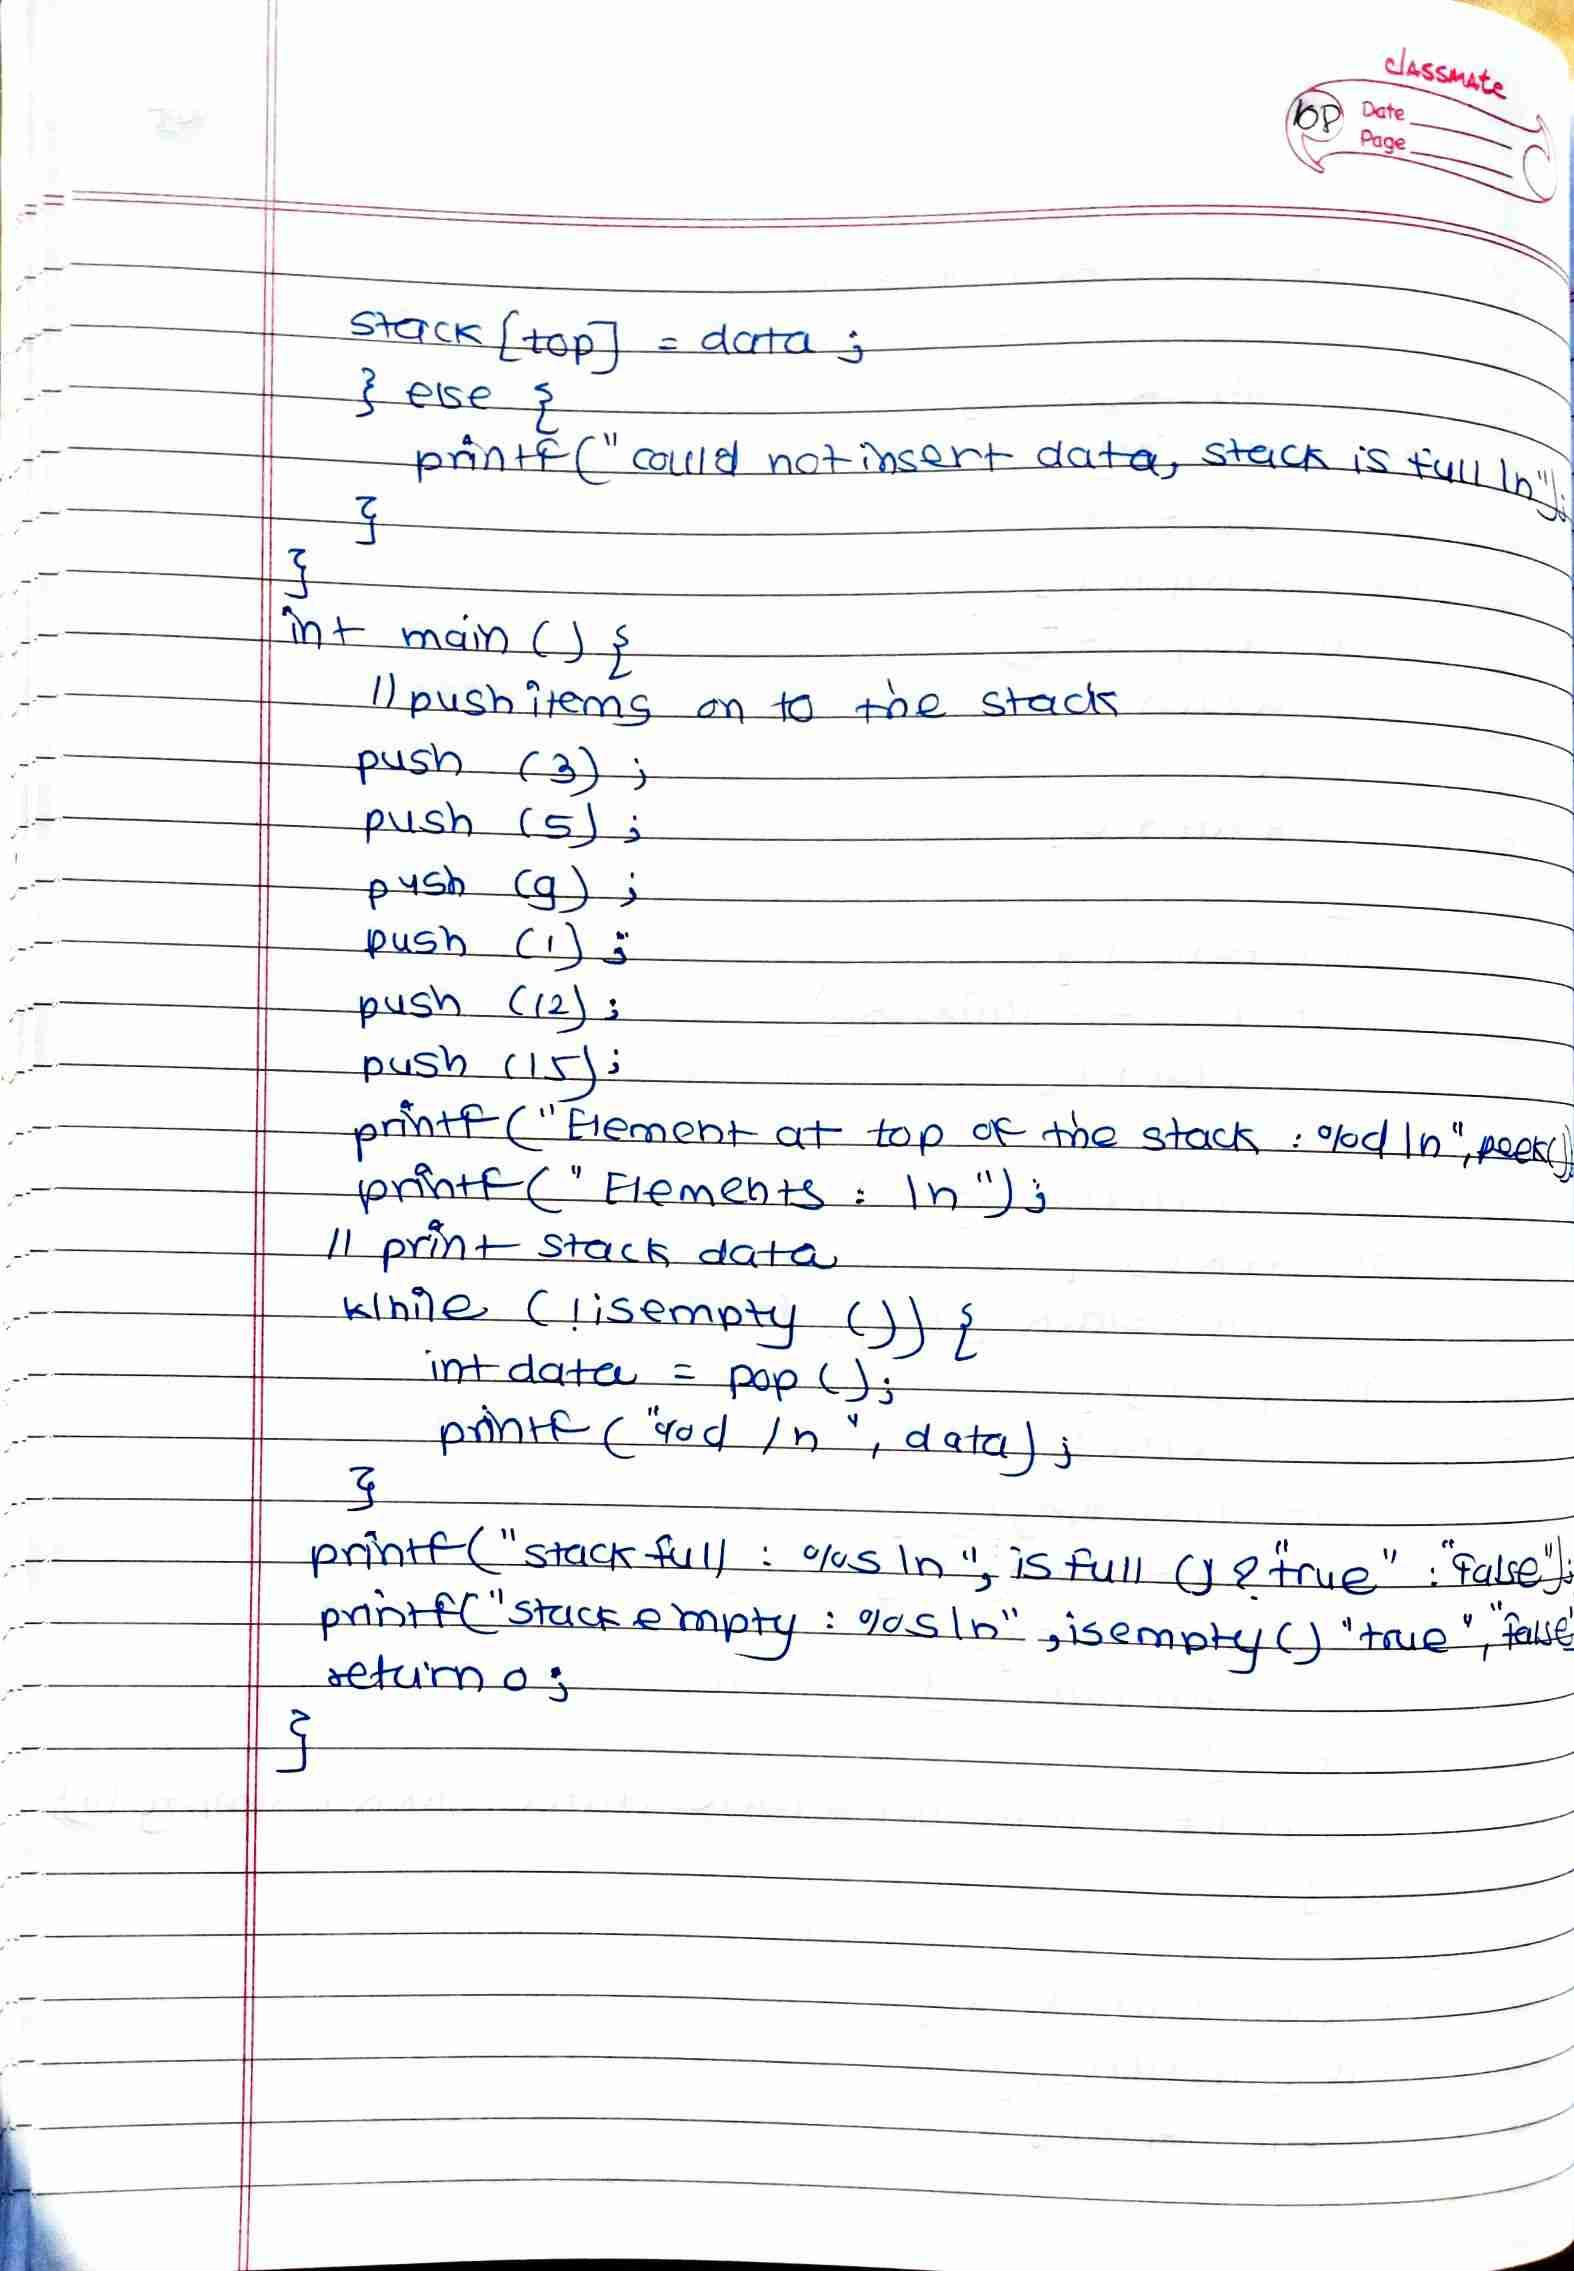 classmate
108
Date
Page
stack [top] = data ;
} else {
printf ("could not insert data, stack is full \n");
}
}
int main () {
// push items on to the stack
push (3) ;
push (5) ;
push (9) ;
push (1) ;
push (12) ;
push (15) ;
printf ("Element at top of the stack : %d \n", peek()
printf (" Elements : \n") ;
// print stack data
while (!isempty ()) {
int data = pop () ;
printf ("%d /n", data) ;
}
printf ("stack full : %s \n", is full () ? "true" : "false");
printf ("stack empty : %s \n", isempty () "true", "false"
return 0 ;
}